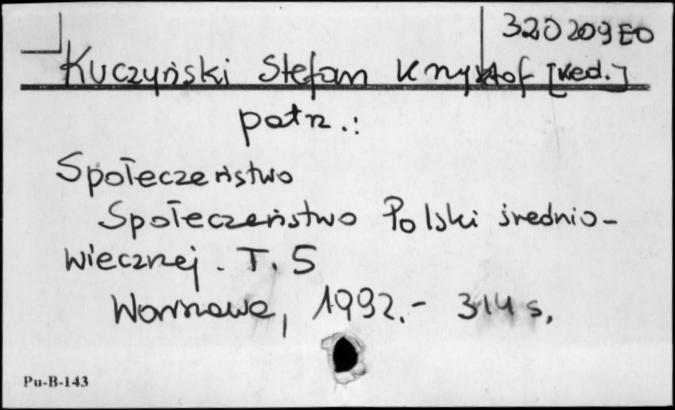 320209 EO
Kuczyński Stefan Krzysztof [red.]
patrz.:
Społeczeństwo
Społeczeństwo Polski średnio-
wiecznej. T. 5
Warszawa, 1992.- 314 s.
Pu-B-143